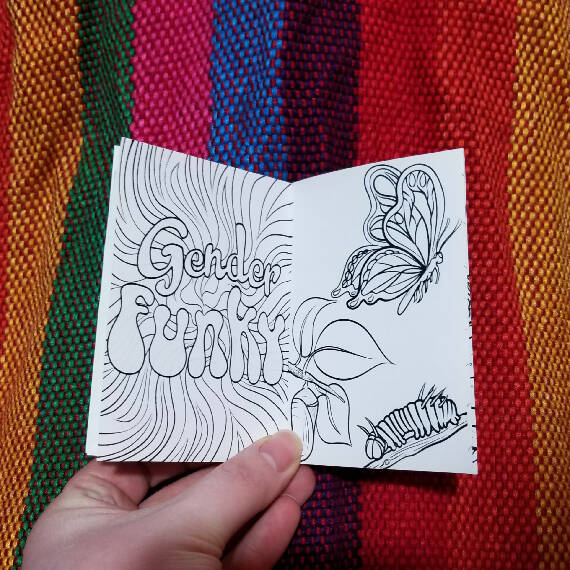 Gender
Funky